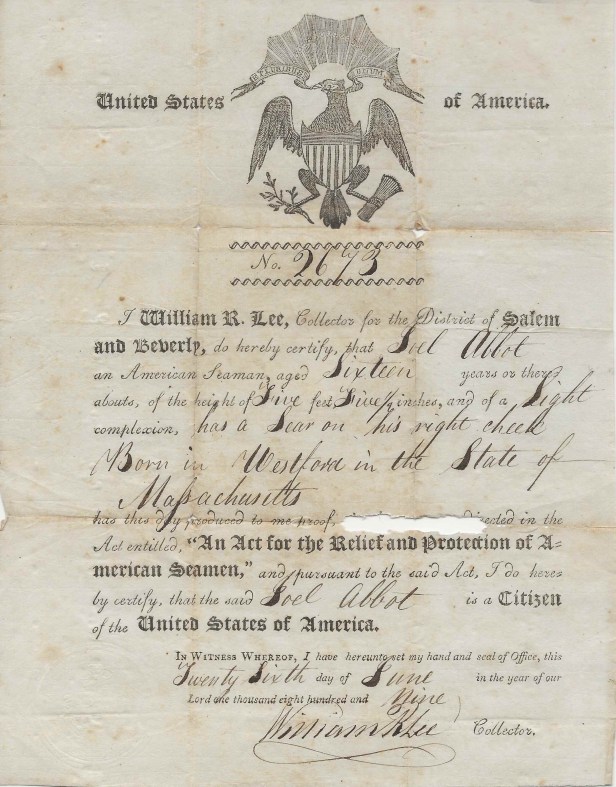 E PLURIBUS UNUM
United States of America.
No. 2673
I William R. Lee, Collector for the District of Salem
and Beverly, do hereby certify, that Joel Abbot
an American Seaman, aged Sixteen years or there=
abouts, of the height of Five feet Five inches, and of a Light
complexion, has a Scar on his right cheek
Born in Westford in the State of
Massachusetts
has this day produced to me proof, directed in the
Act entitled, "An Act for the Relief and Protection of A=
merican Seamen," and pursuant to the said Act, I do here=
by certify, that the said Joel Abbot is a Citizen
of the United States of America.
In Witness Whereof, I have hereunto set my hand and seal of Office, this
Twenty Sixth day of June in the year of our
Lord one thousand eight hundred and Nine
William R Lee Collector.